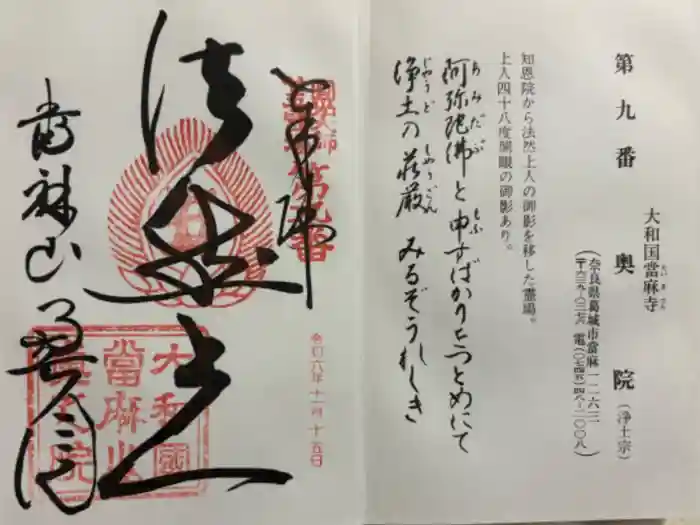 第九番 奥院（浄土宗）
大和国當麻寺
たいまでら
（奈良県葛城市當麻一二六三
〒六三九ー〇二七六 電（〇七四五）四八ー二〇〇八）
知恩院から法然上人の御影を移した霊場。
上人四十八度開眼の御影あり。
阿弥陀佛と申すばかりをつとめにて
あみだぶ
浄土の荘厳 みるぞうれしき
じやうど しやうごん
奉拝
第九番
令和六年十一月十五日
法然上人
大和國
當麻山
奥之院
當麻山奥院